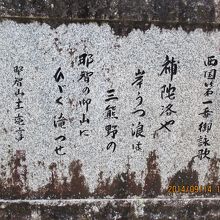 西国第一番御詠歌
補陀洛や
岸うつ浪は
三熊野の
那智の御山に
ひゞく滝つせ
那智山主亮孝
2014/09/14